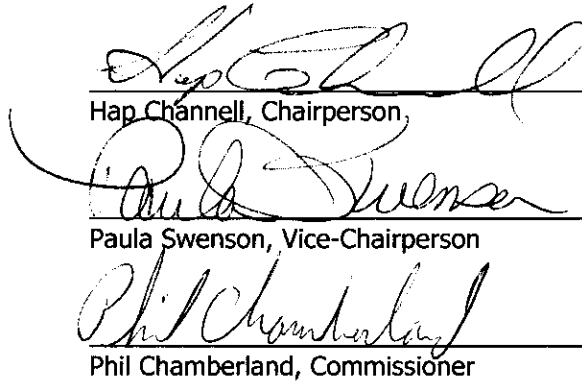 Hap Channell
Hap Channell, Chairperson
Paula Swenson
Paula Swenson, Vice-Chairperson
Phil Chamberland
Phil Chamberland, Commissioner